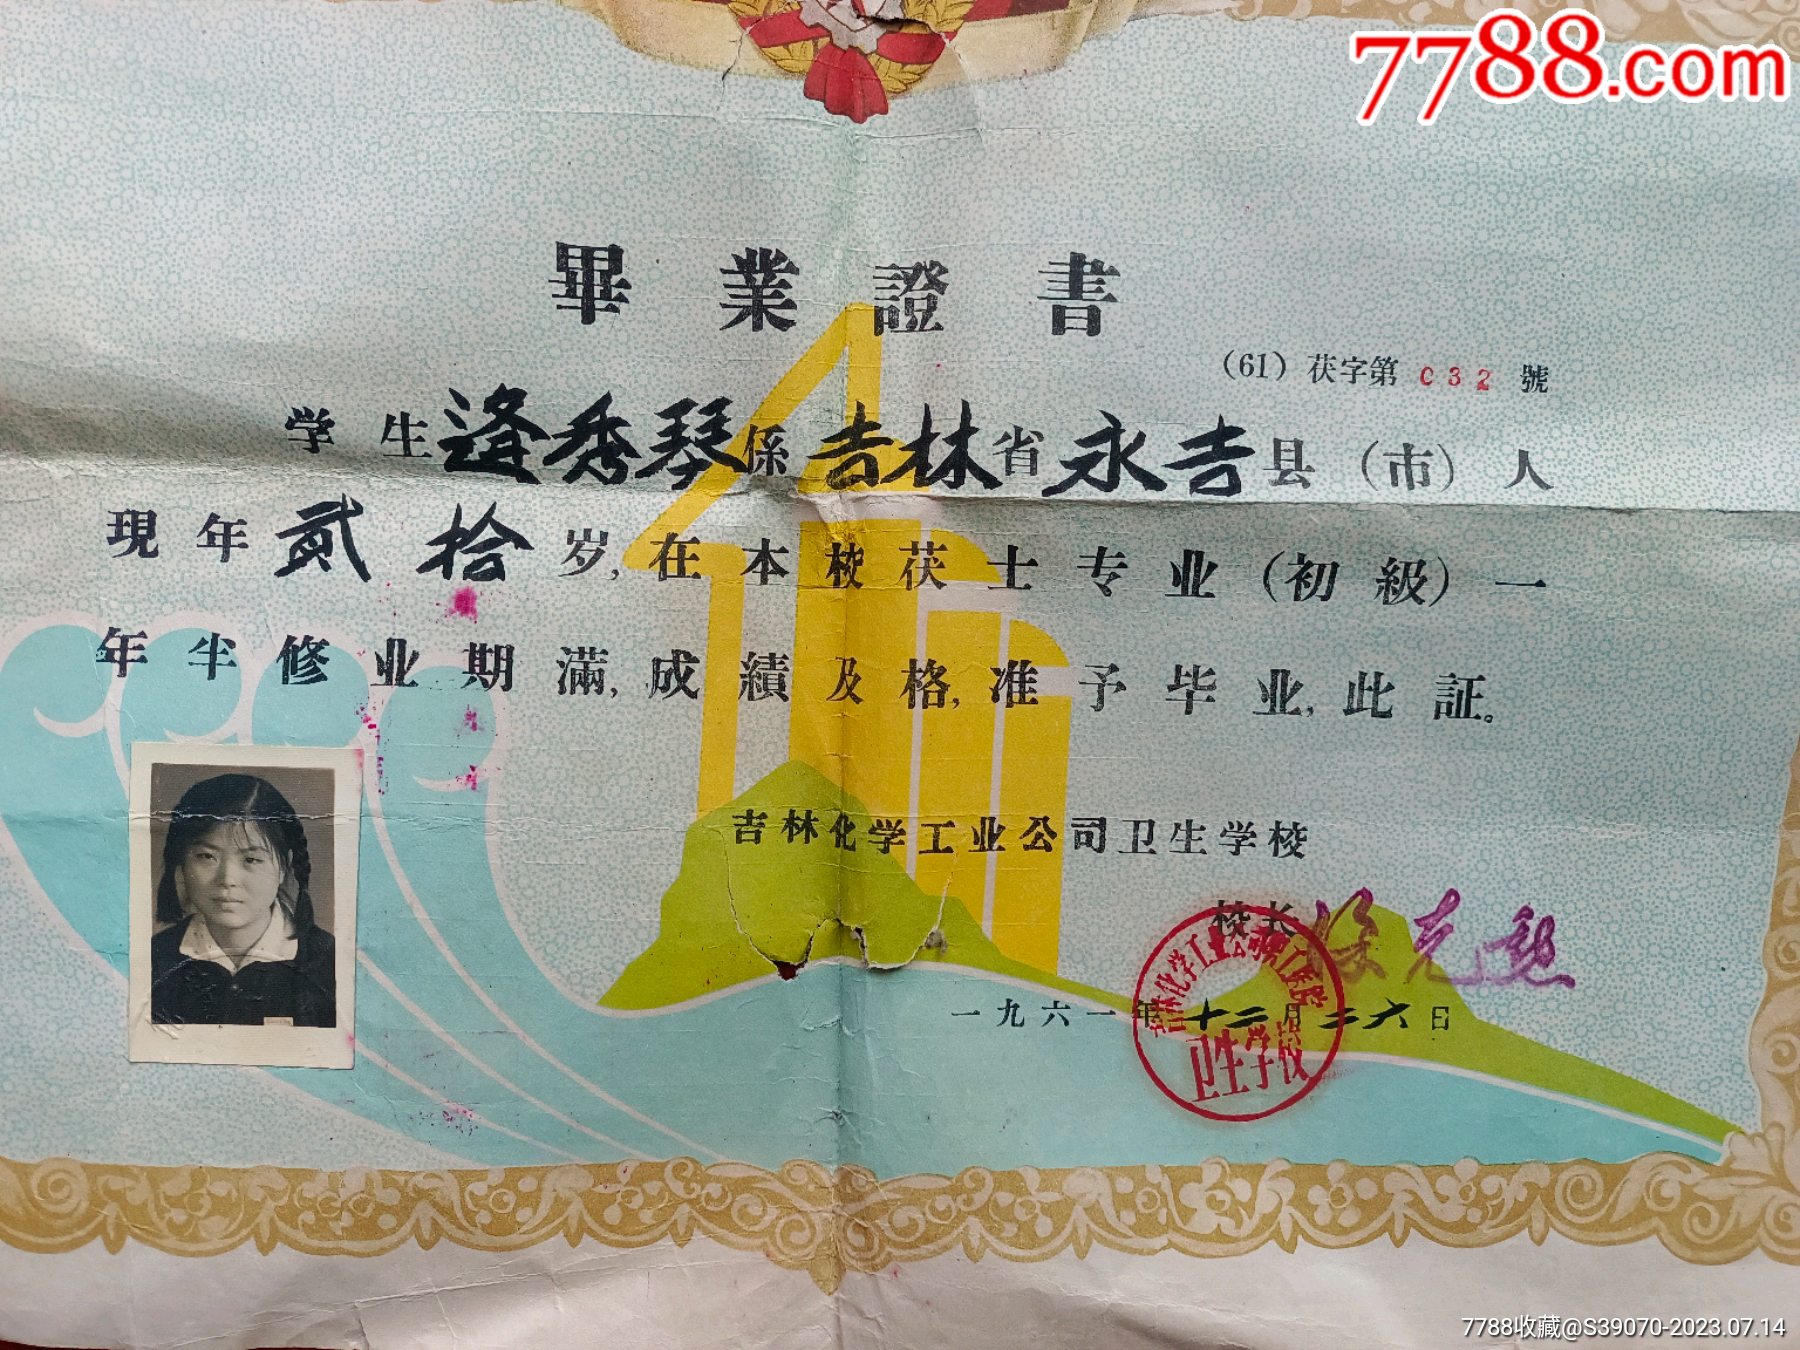 7788.com
畢業證書
(61) 茯字第 032 號
学生逄秀琴係吉林省永吉县（市）人
現年贰拾岁,在本校茯士专业(初級)一
年半修业期满,成績及格,准予毕业,此証。
吉林化学工业公司卫生学校
校长
一九六一年十二月二六日
吉林化学工业公司职工医院
卫生学校
7788收藏@S39070-2023.07.14